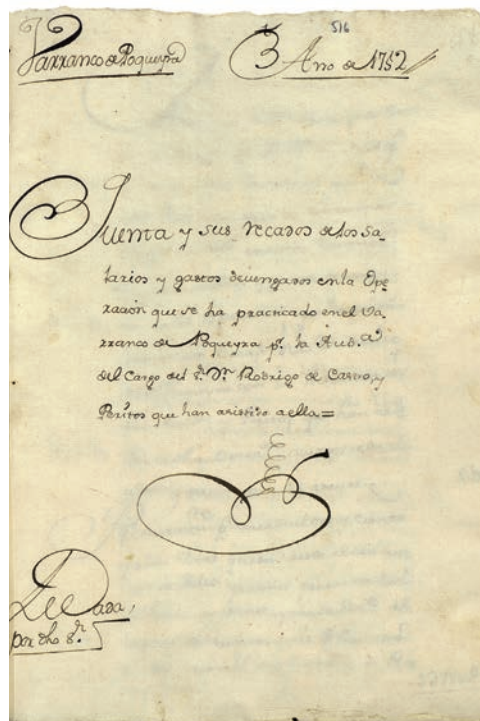 516
Varranco de Poqueyra
Año de 1752
Quenta y sus recados de los Sa-
larios y gastos devengados en la Ope
racion que se ha practicado en el Va-
rranco de Poqueyra pr. la Aud.a
del Cargo del Sr. Dn. Rodrigo de Castro, y
Peritos que han asistido a ella =
Dada,
por dho Sr.